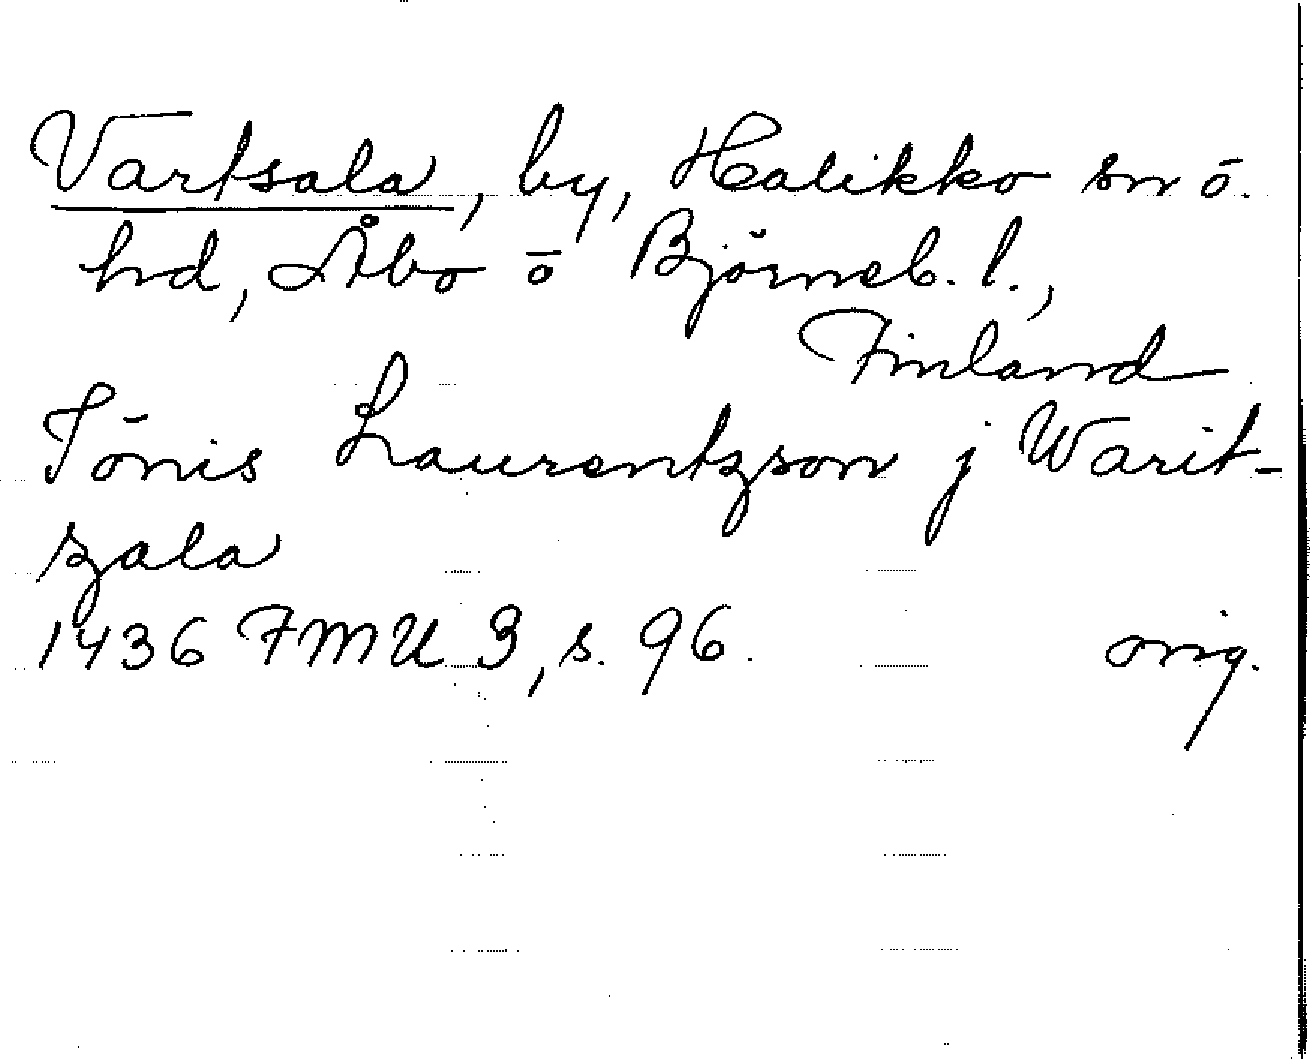 Vartsala, by, Halikko sn ō.
hd, Åbo ō Björneb. l.,
Finland
Tōnis Laurentzson j Warit-
zala
1436 FMU 3, s. 96. orig.